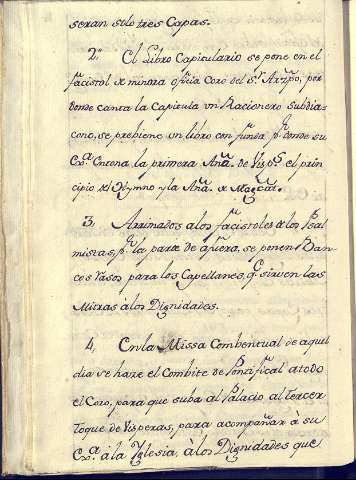 seran solo tres Capas.
2.ª El Libro Capitulario se pone en el
facistol de minora oficia Coro del S.r Arzpo, por
donde canta la Capitula un Racionero subdia-
cono, se prebiene un libro con funda p.ª donde su
Ex.ª Entona la primera Anã. de Visp.s el prin-
cipio del Hymno y la Anã. de Magcat.
3, Arrimados a los facistoles de los Psal-
mistas, p.r la parte de afuera, se ponen Ban-
cos rasos para los Capellanes, q.e sirven las
Mitras à los Dignidades.
4, En la Missa Combentual de aquel
dia se haze el Combite de Pontifical a todo
el Coro, para que suba al Palacio al tercer
toque de Visperas, para acompañar à su
Ex.ª à la Yglesia, à los Dignidades que